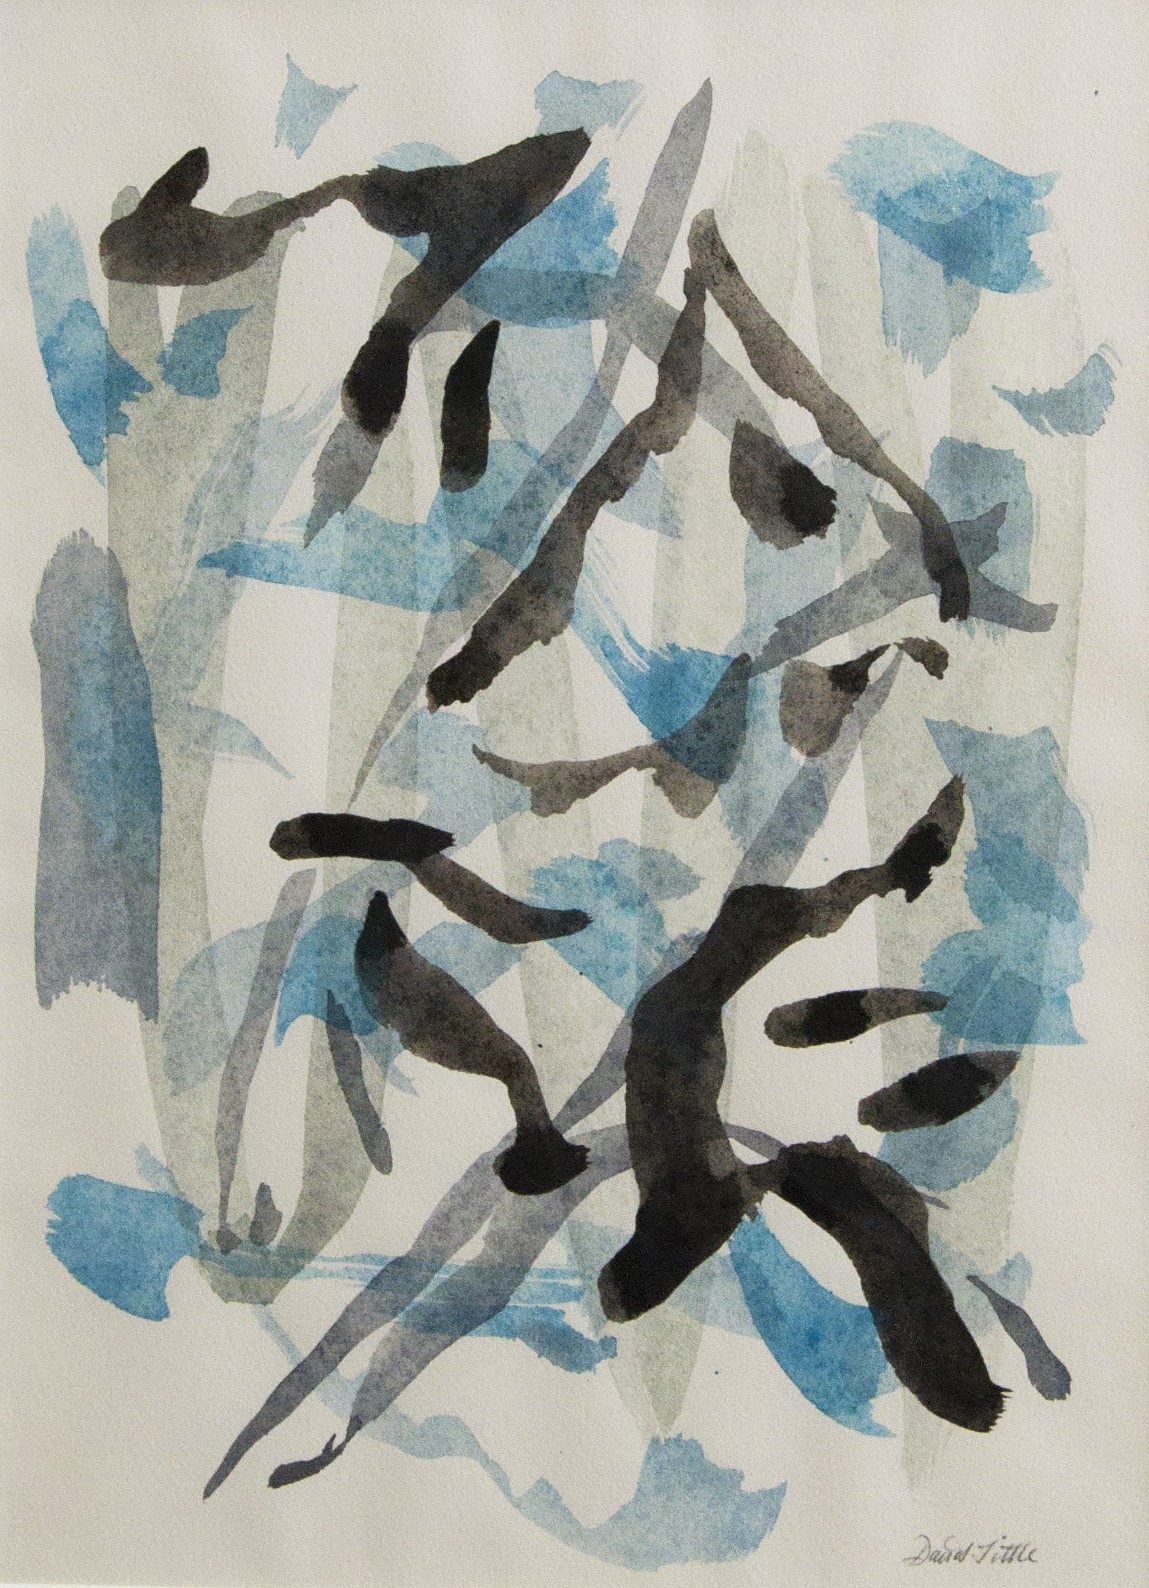 David Tittle